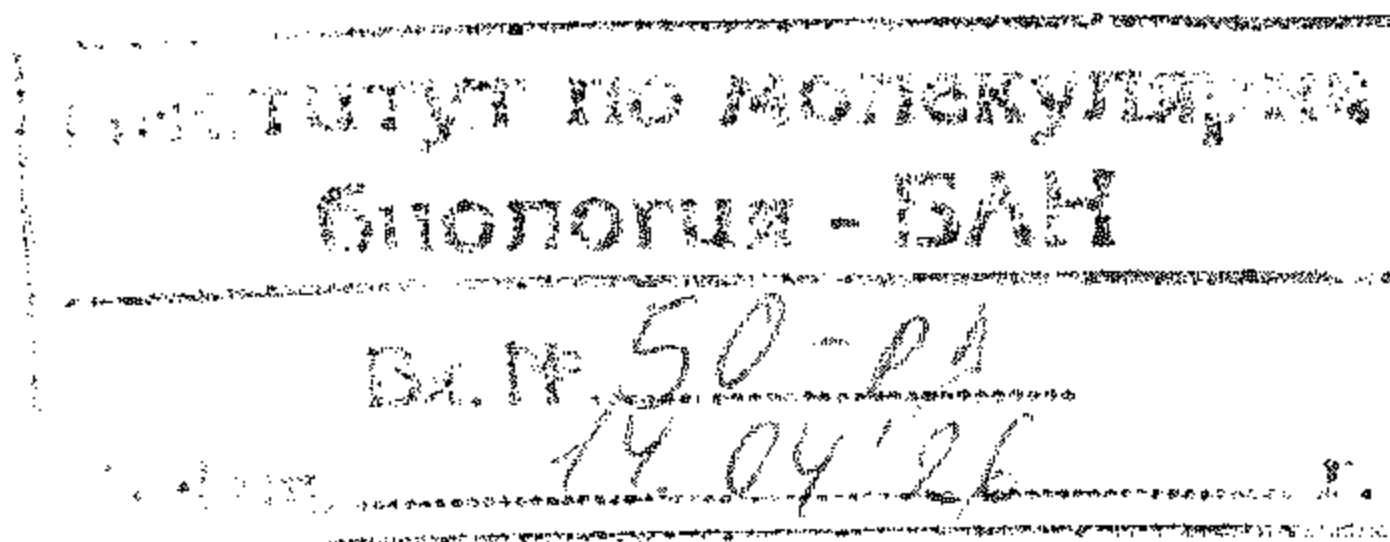 Институт по молекулярна
биология - БАН
Вх. № 50-РД
14.04'26 г.